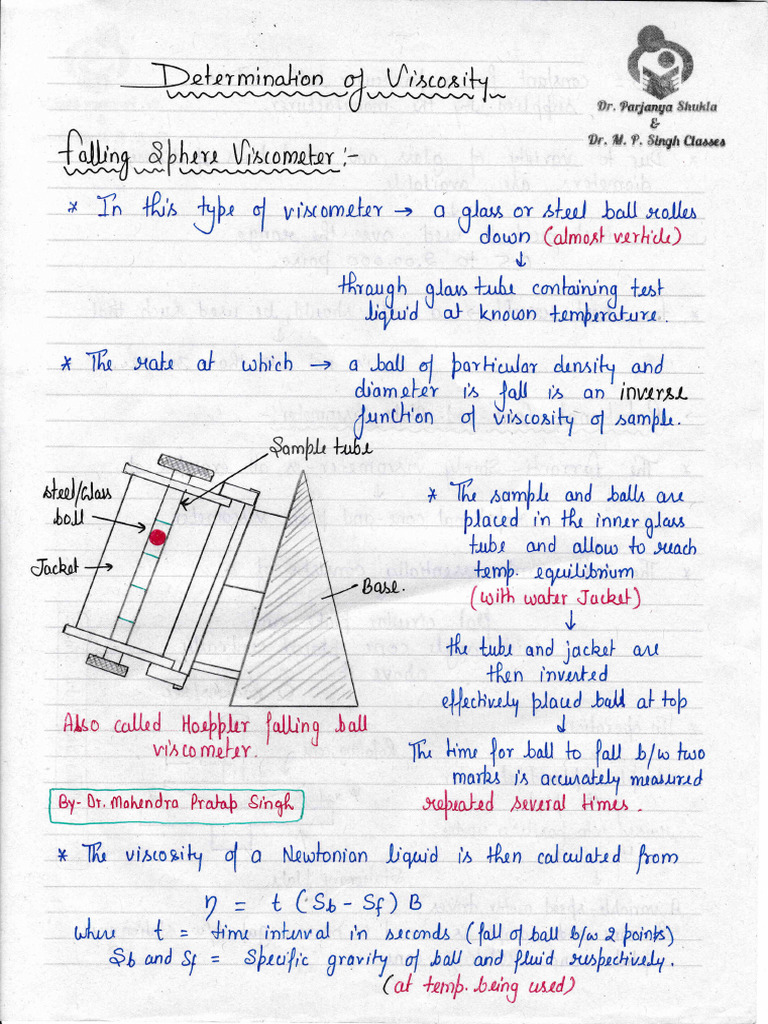 Determination of Viscosity
Dr. Parjanya Shukla
&
Dr. M. P. Singh Classes
Falling Sphere Viscometer :-
* In this type of viscometer → a glass or steel ball rolles
down (almost verticle)
↓
through glass tube containing test
liquid at known temperature.
* The rate at which → a ball of particular density and
diameter is fall is an inverse
function of viscosity of sample.
Sample tube
Steel/Glass
ball
Jacket →
Base.
* The sample and balls are
placed in the inner glass
tube and allow to reach
temp. equilibrium
(with water Jacket)
↓
the tube and jacket are
then inverted
effectively placed ball at top
↓
The time for ball to fall b/w two
marks is accurately measured
repeated several times.
Also called Hoeppler falling ball
viscometer.
By- Dr. Mahendra Pratap Singh
* The viscosity of a Newtonian liquid is then calculated from
η = t (Sb - Sf) B
where t = time interval in seconds (fall of ball b/w 2 points)
Sb and Sf = Specific gravity of ball and fluid respectively.
(at temp. being used)